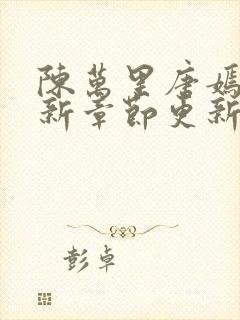 陳萬里唐嫣
新章節更新
彭卓